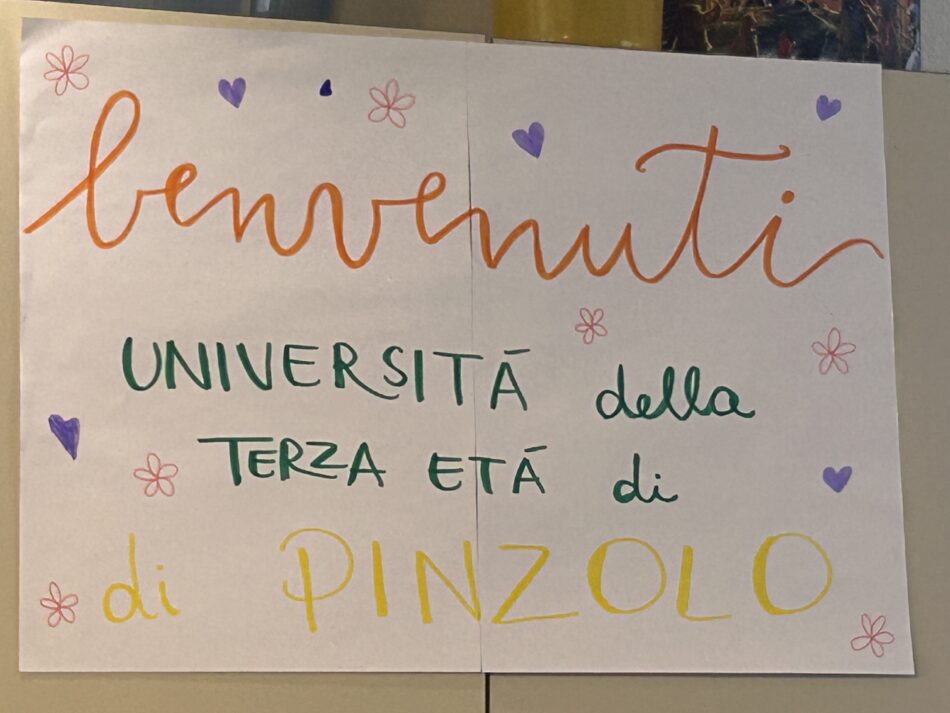 benvenuti
UNIVERSITÁ della
TERZA ETÁ di
di PINZOLO